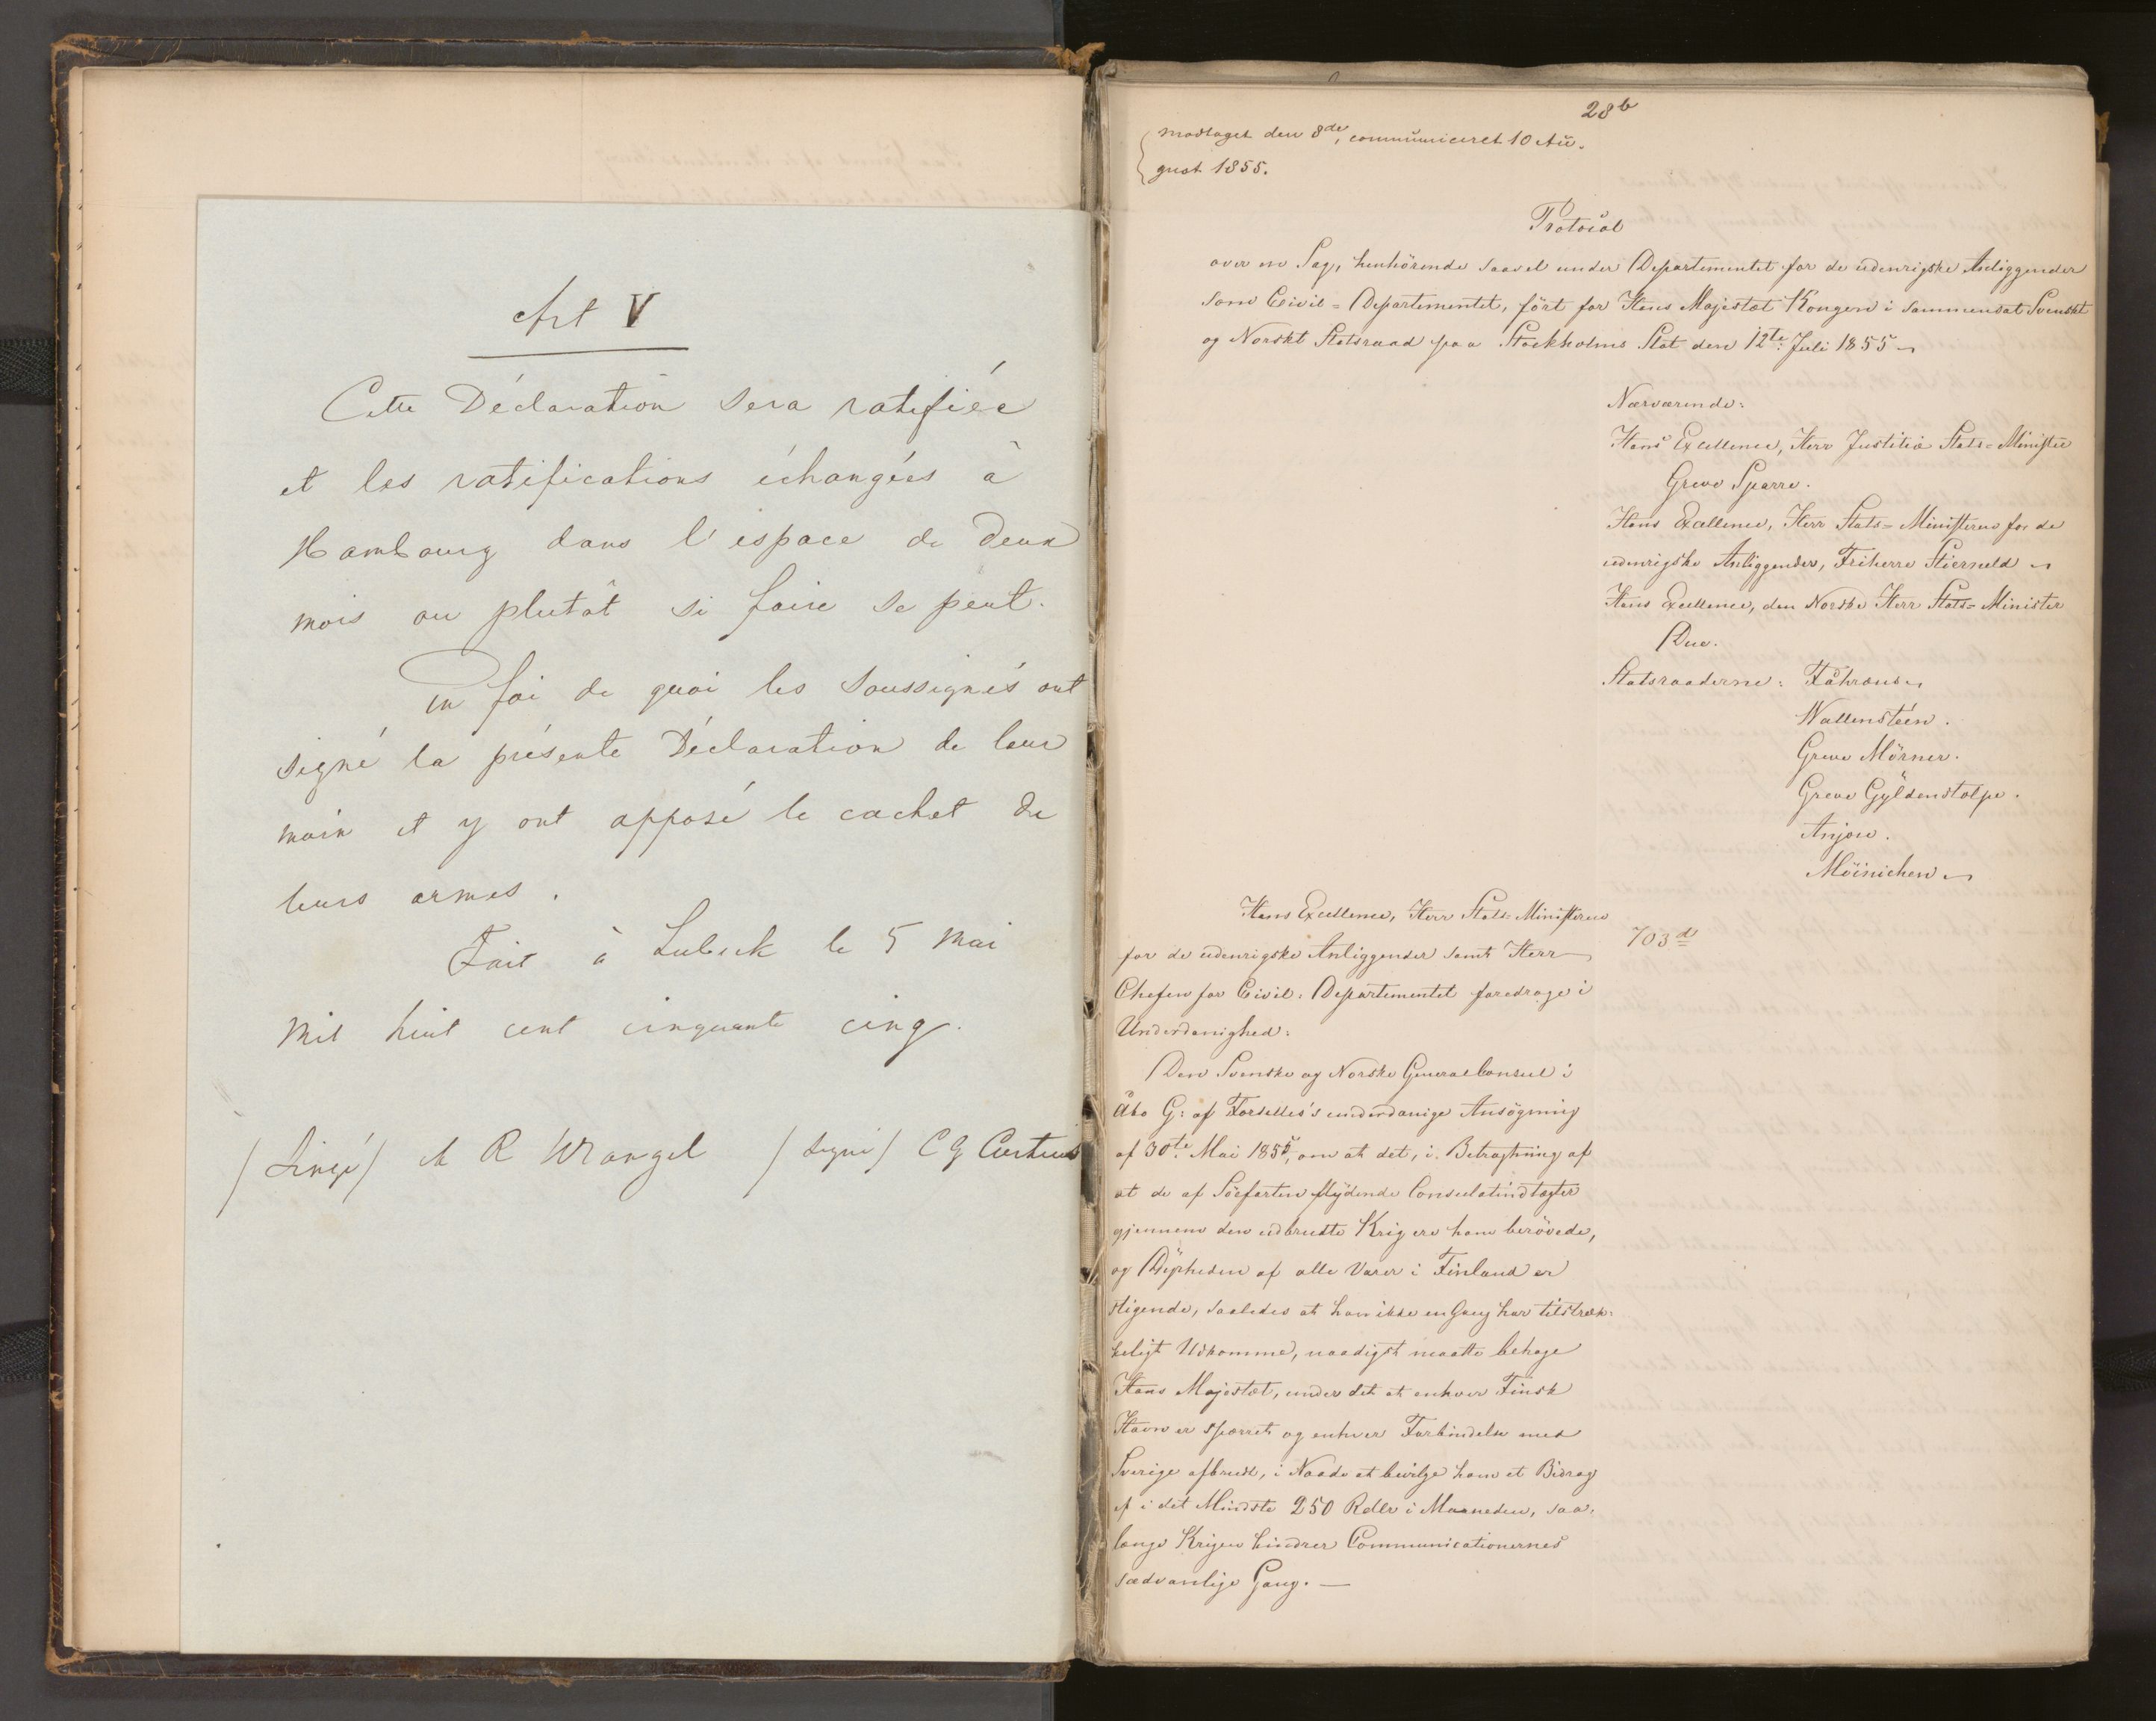 Art V
Cette Déclaration sera ratifiée
et les ratifications échangées à
Hambourg dans l'espace de deux
mois ou plutôt si faire se peut.
En foi de quoi les soussignés ont
signé la présente Déclaration de leur
main et y ont apposé le cachet de
leurs armes.
Fait à Lubeck le 5 Mai
mil huit cent cinquante cinq.
/Signé/ A R Wrangel /signé/ C G Curtius
28b
modtaget den 8de, communiceret 10 Au-
gust 1855.
Protocol
over en Sag, henhörende saavel under Departementet for de udenrigske Anliggender
som Civil-Departementet, fört for Hans Majestæt Kongen i sammensat Svenskt
og Norskt Statsraad paa Stockholms Slot den 12te Juli 1855
Nærværende:
Hans Excellence, Herr Justitiæ Stats-Minister
Greve Sparre.
Hans Excellence, Herr Stats-Ministeren for de
udenrigske Anliggender, Friherre Stierneld
Hans Excellence, den Norske Herr Stats-Minister
Due.
Statsraaderne: Fåhræus
Wallenstéen.
Greve Mörner.
Greve Gyldenstolpe.
Anjou.
Möinichen
Hans Excellence, Herr Stats-Ministeren
703d
for de udenrigske Anliggender samt Herr
Chefen for Civil-Departementet foredrage i
Underdanighed:
Den Svenske og Norske Generalconsul i
Åbo G: af Forselles's underdanige Ansögning
af 30te Mai 1855, om at det, i Betragtning af
at de af Söefarten flydende Consulatindtægter
gjennem den udbrudte Krig ere ham berövede,
og Dyrheden af alle Varer i Finland er
stigende, saaledes at han ikke en Gang har tilstræk-
keligt Udkomme, naadigst maatte behage
Hans Majestæt, under det at enhver Finsk
Havn er spærret og enhver Forbindelse med
Sverige afbrudt, i Naade at bevilge ham et Bidrag
af i det Mindste 250 Rdlr i Maaneden, saa-
længe Krigen hindrer Communicationernes
sædvanlige Gang. —